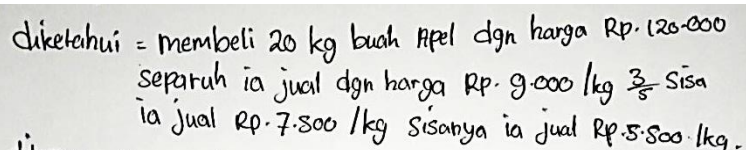 diketahui = membeli 20 kg buah Apel dgn harga Rp. 120.000
separuh ia jual dgn harga Rp. 9.000 /kg 3/5 Sisa
ia jual Rp. 7.500 /kg Sisanya ia jual Rp. 5.500 /kg.